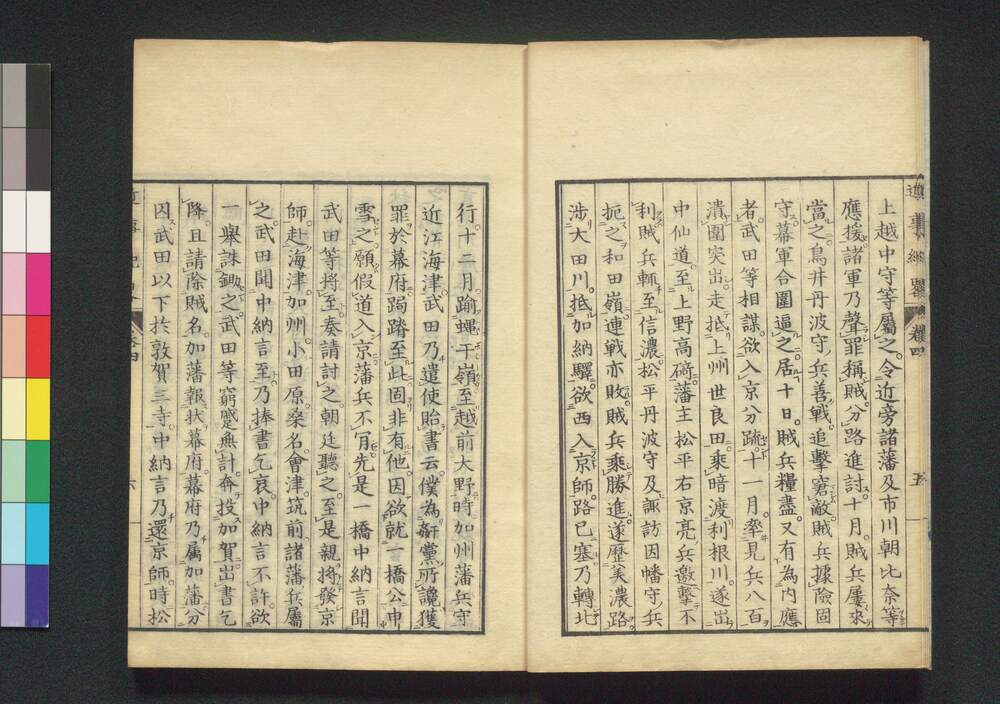 上越中守等屬之令近旁諸藩及市川朝比奈等
應援諸軍乃聲罪稱賊分路進討十月賊兵屢來
當之鳥井丹波守兵善戰追擊窘敵賊兵據險固
守幕軍合圍逼之居十日賊兵糧盡又有為內應
者武田等相謀欲入京分疏十一月率見兵八百
潰圍突出走抵上州世良田乘暗渡利根川遂出
中仙道至上野高碕藩主松平右京亮兵邀擊不
利賊兵輒至信濃松平丹波守及諏訪因幡守兵
扼之和田嶺連戰亦敗賊兵乘勝進遂歷美濃路
涉大田川抵加納驛欲西入京師路已塞乃轉北
近事紀略 卷四
五
行十二月踰蠅干嶺至越前大野時加州藩兵守
近江海津武田乃遣使貽書云僕為姧黨所讒獲
罪於幕府跼蹐至此固非有他因欲就一橋公申
雪之願假道入京藩兵不肯先是一橋中納言聞
武田等將至奏請討之朝廷聽之至是親將發京
師赴海津加州小田原桑名會津筑前諸藩兵屬
之武田聞中納言至乃捧書乞哀中納言不許欲
一舉誅鋤之武田等窮蹙無計奔投加賀出書乞
降且請除賊名加藩報狀幕府幕府乃属加藩分
囚武田以下於敦賀三寺中納言乃還京師時松
六